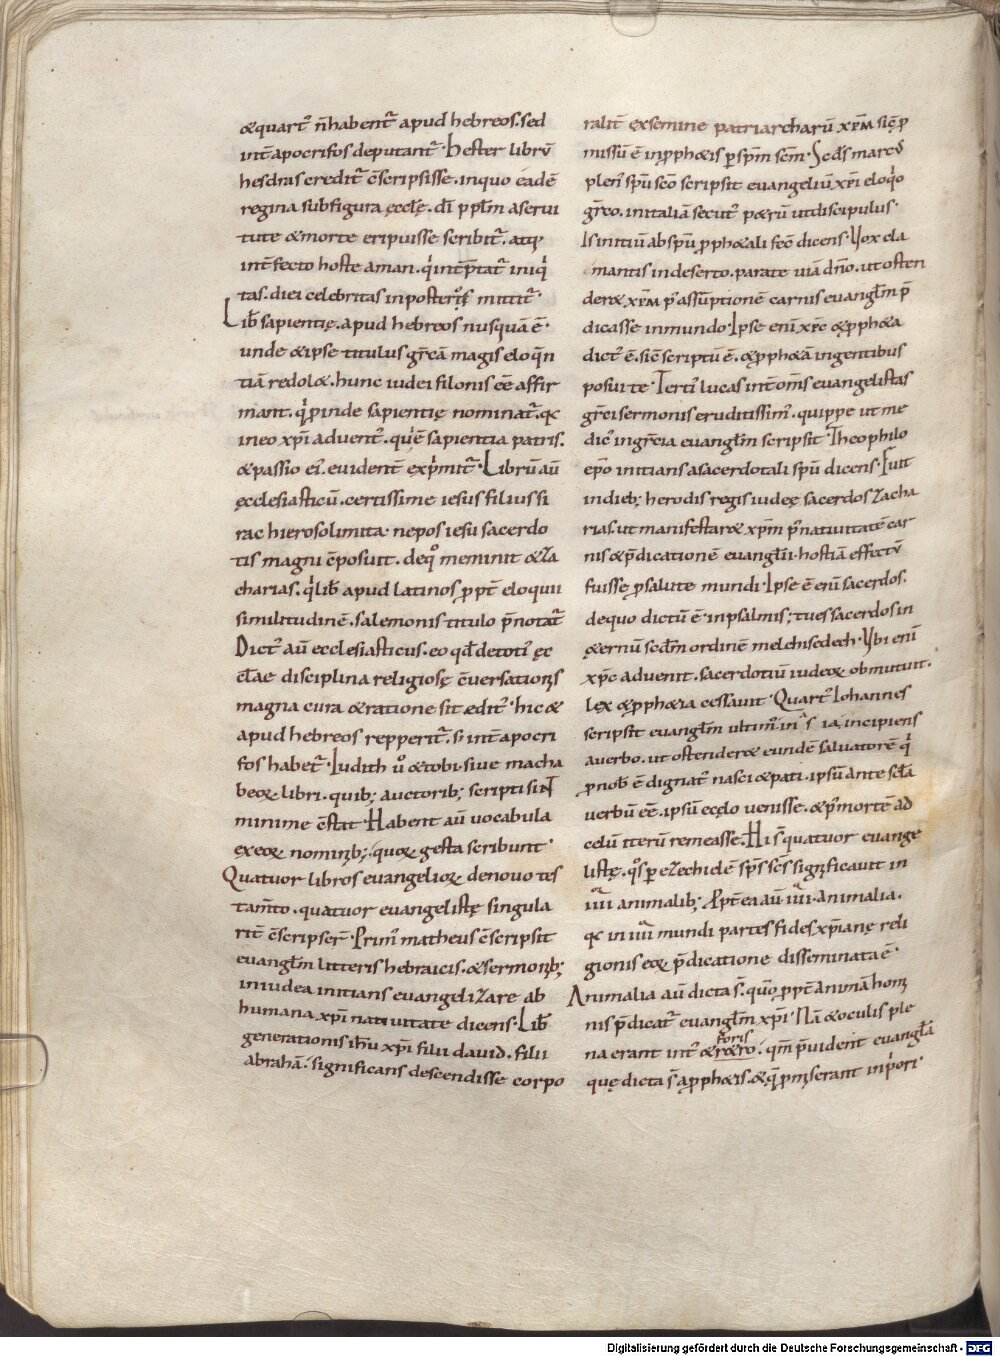 &quart᷒ n̄ habent᷑ apud hebreos. sed
int̄ apocrifos deputant᷑. Hester librū
hesdras credit᷑ c̄scripsisse. in quo eadē
regina sub figura ęcclę. dī pplm̄ a servi
tute & morte eripuisse scribit᷑. atq;
int̄fecto hoste aman. q̍ int̄p̄tat᷑ iniq̍
tas. diei celebritas in posteros mittit᷑.
Lib̄ sapientię. apud hebreos nusquā ē.
unde & ipse titulus gr̄cā magis eloq̄n
tiā redol&. hunc iudei filonis eē affir
mant. q̍ ꝓinde sapientię nominat᷑. qc
in eo xpi advent᷒. qui ē sapientia patris.
& passio ei᷒. evident̄ exp̍mit᷑. Librū aū
ęcclesiasticū. certissime iesus filius si
rac hierosolimita. nepos iesu sacerdo
tis magni c̄posuit. de q̊ meminit & za
charias. q̍ lib̄ apud latinos ꝓpt̄ eloquii
similitudinē. salemonis titulo p̄notat᷑
Dict᷒ aū ecclesiasticus. eo qđ de toti᷒ ęc
clae disciplina religiosę c̄versationis
magna cura & ratione sit edit᷒. hic &
apud hebreos repperit᷑. s; int̄ apocri
fos habet᷑. Iudith v̊ & tobi. sive macha
beoꝝ libri. quib; auctorib; scripti sint
minime c̄stat. Habent aū vocabula
ex eoꝝ nominib; quoꝝ gesta scribunt᷑.
Quatuor libros evangelioꝝ de novo tes
tam̄to. quatuor evangelistę singula
rit̄ c̄scripser̄. Prim᷒ matheus c̄scripsit
evanglm̄ litteris hebraicis. & sermonib;
in iudea initians evangelizare ab
humana xpi nativitate dicens. Lib̄
generationis ihu xpi filii david. filii
abrahā. significans descendisse corpo
ralit̄ ex semine patriarcharū xpm sic ꝓ
missū ē in ꝓph&is ꝑ spm scm. Scds marc᷒
plen᷒ spu sco scripsit evangeliū xpi eloq̍o
gr̄co. in italiā secut᷒ p&rū ut discipulus.
Is initiū ab spu ꝓph&ali fec̄ dicens. Vox cla
mantis in deserto. parate viā dno. ut osten
der& xpm p᷒ assūptionē carnis evanglm̄ p̄
dicasse in mundo. Ipse enī xpc & ꝓph&a
dict᷒ ē. sic̄ scriptū ē. & ꝓph&ā in gentibus
posui te. Terti᷒ lucas int̄ oms evangelistas
gr̄ci sermonis eruditissim᷒. quippe ut me
dic᷒ in gr̄cia evanglm̄ scripsit. Theophilo
epo initians a sacerdotali spu dicens. Fuit
in dieb; herodis regis iudeę sacerdos zacha
rias. ut manifestar& xpm p᷒ nativitatē car
nis & p̄dicationē evanglii. hostiā effectū
fuisse ꝓ salute mundi. Ipse ē enī sacerdos.
de quo dictū ē. in psalmis; tu es sacerdos in
&ernū scdm ordinē melchisedech. Ubi enī
xpc advenit. sacerdotiū iudeoꝝ obmutuit.
lex & ꝓph&ia cessavit. Quart᷒ Iohannes
scripsit evanglm̄ ultim᷒ in asia. incipiens
a verbo. ut ostender& eundē salvatorē q̍
ꝓ nob̄ ē dignat᷒ nasci & pati. ipsū ante scla
verbū eē. ipsū e cęlo venisse. & p᷒ mortē ad
celū iterū remeasse. Hi s̄ quatuor evange
listę. q̊s ꝑ ezechielē sps scs significavit in
iiii animalib; Ppt̄ ea aū iiii. animalia.
qc in iiii mundi partes fides xpianę reli
gionis eoꝝ p̄dicatione disseminata ē.
Animalia aū dicta s̄. quō ꝓpt̄ animā homi
nis p̄dicat᷑ evanglm̄ xpi. Nā & oculis ple
foris
na erant int᷒ & r&ro. qm̄ p̄vident evangla
quę dicta s̄ a ꝓph&is. & q̨ ꝓmiserant in p̍ori
Digitalisierung gefördert durch die Deutsche Forschungsgemeinschaft - DFG